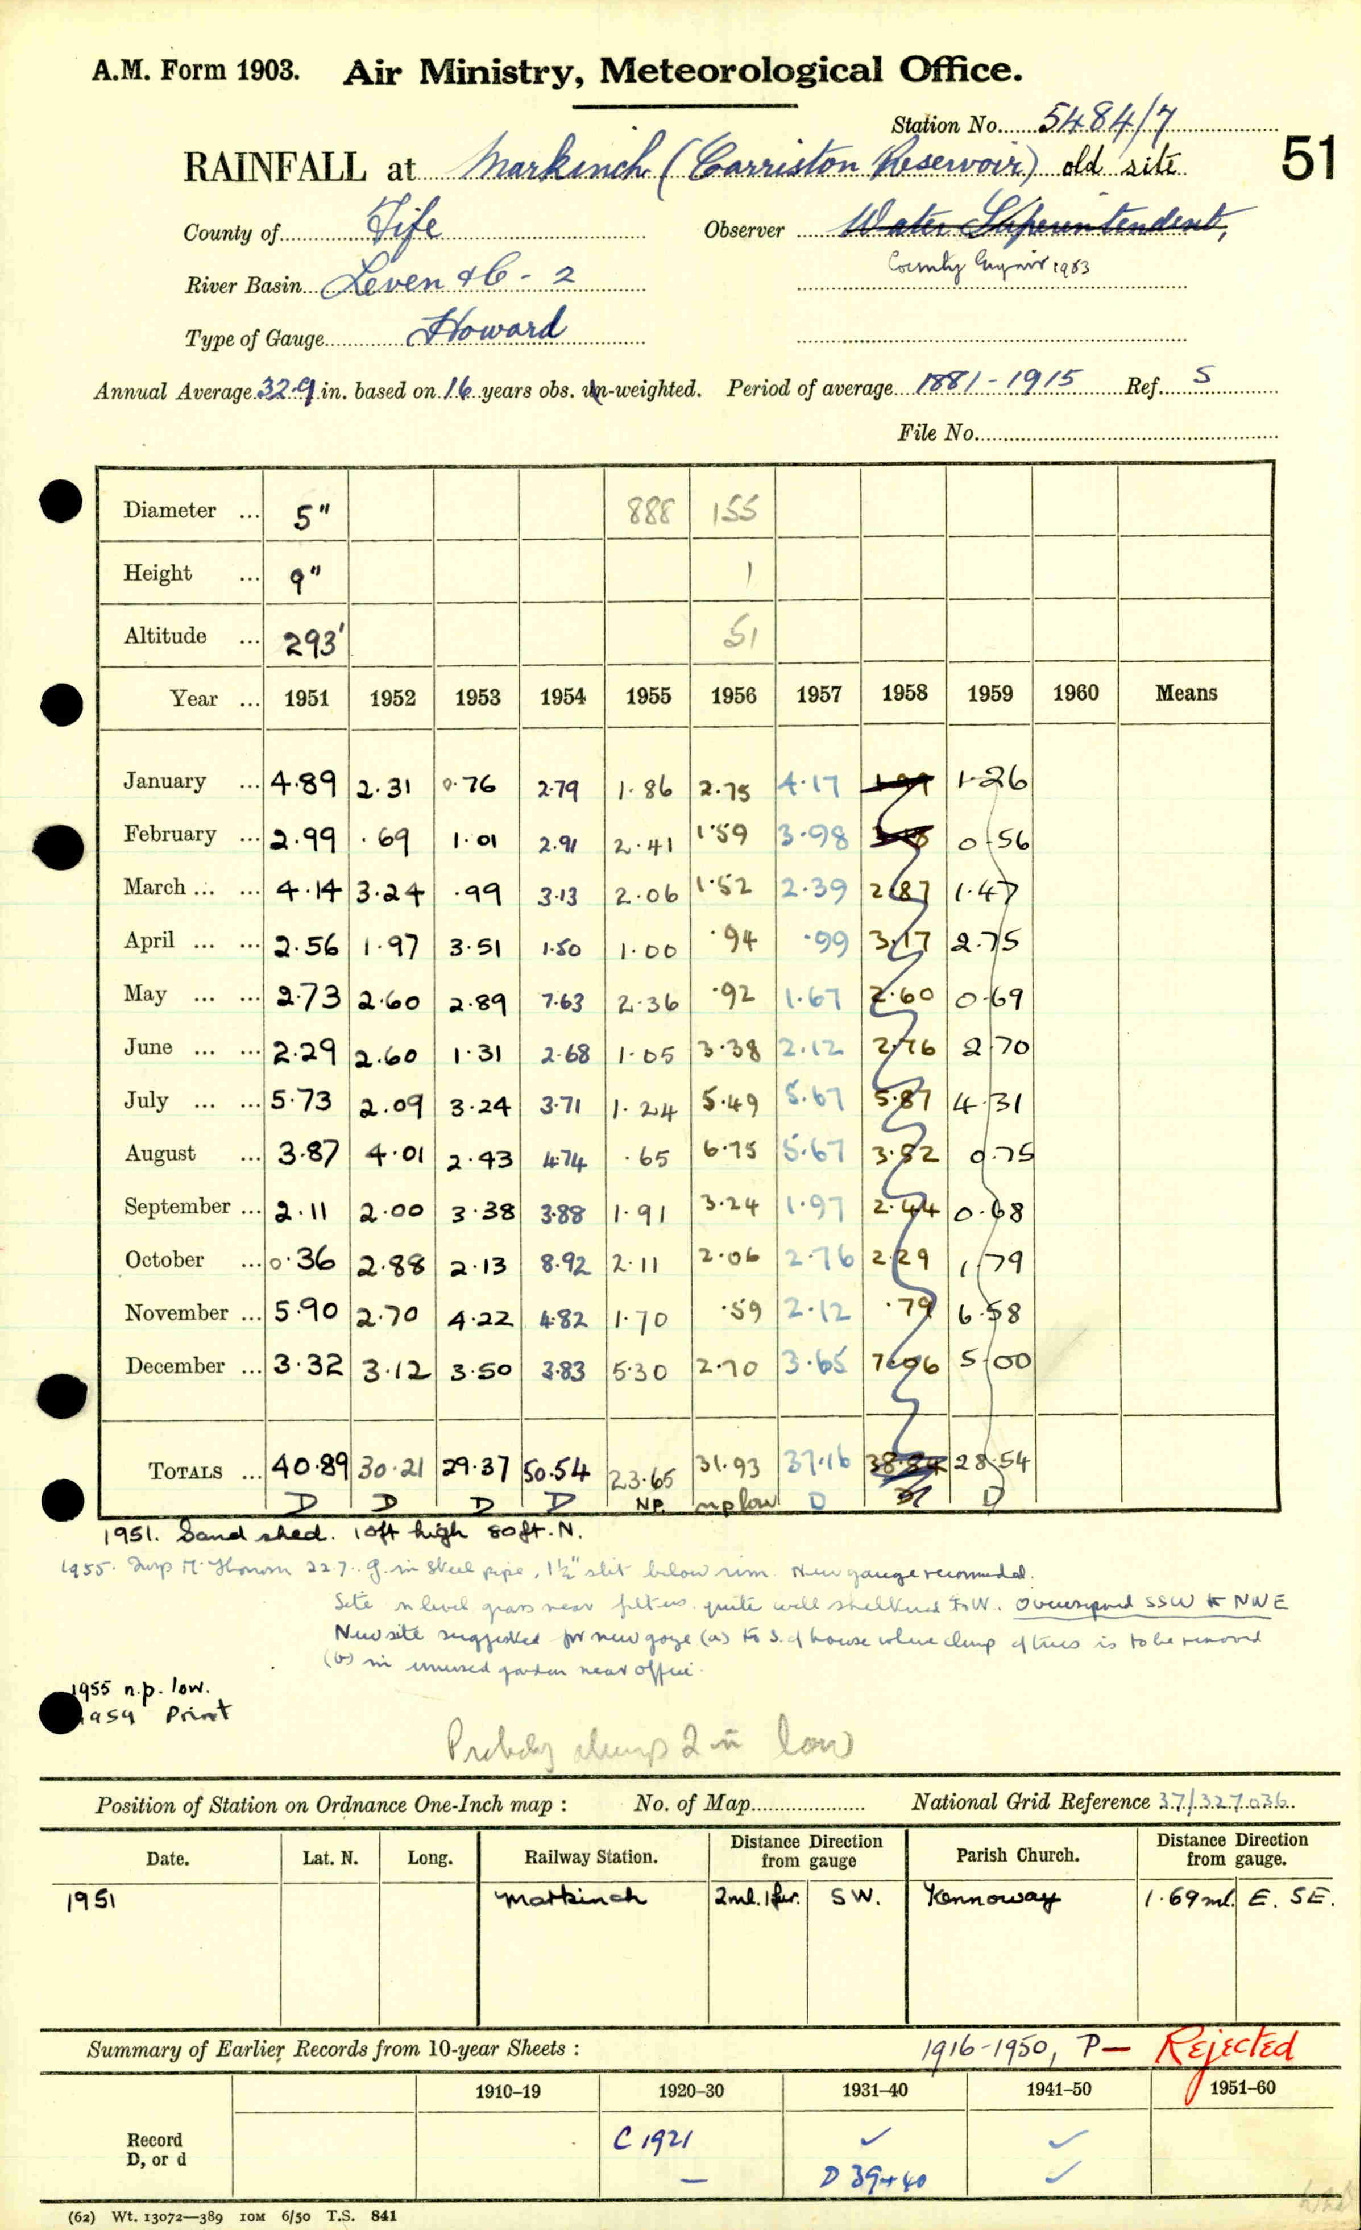 A.M. Form 1903. Air Ministry, Meteorological Office.
Station No. 5484/7
RAINFALL at Markinch (Carriston Reservoir) old site 51
County of Fife Observer Water Superintendent,
County Engineer 1953
River Basin Leven &c - 2
Type of Gauge Howard
Annual Average 32.9 in. based on 16 years obs. un-weighted. Period of average 1881-1915 Ref. S
File No.
Diameter ... 5" 888 155
Height ... 9" 1
Altitude ... 293' 51
Year ... 1951 1952 1953 1954 1955 1956 1957 1958 1959 1960 Means
January ... 4.89 2.31 0.76 2.79 1.86 2.75 4.17 1.26
February ... 2.99 .69 1.01 2.91 2.41 1.59 3.98 0.56
March ... ... 4.14 3.24 .99 3.13 2.06 1.52 2.39 2.87 1.47
April ... ... 2.56 1.97 3.51 1.50 1.00 .94 .99 3.17 2.75
May ... ... 2.73 2.60 2.89 7.63 2.36 .92 1.67 2.60 0.69
June ... ... 2.29 2.60 1.31 2.68 1.05 3.38 2.12 2.76 2.70
July ... ... 5.73 2.09 3.24 3.71 1.24 5.49 5.67 5.87 4.31
August ... 3.87 4.01 2.43 4.74 .65 6.75 5.67 3.82 0.75
September ... 2.11 2.00 3.38 3.88 1.91 3.24 1.97 2.44 0.68
October ... 0.36 2.88 2.13 8.92 2.11 2.06 2.76 2.29 1.79
November ... 5.90 2.70 4.22 4.82 1.70 .59 2.12 .79 6.58
December ... 3.32 3.12 3.50 3.83 5.30 2.70 3.65 7.06 5.00
TOTALS ... 40.89 30.21 29.37 50.54 23.65 31.93 37.16 38.84 28.54
D D D D NP. np low D D
1951. Sand shed. 10ft high 80ft. N.
1955. Insp 22.7. g. in steel pipe, 1½" slit below rim. New gauge recommended.
Site on level grass near filters. quite well sheltered to W. Overexposed SSW to NNE
New site suggested for new gage (a) to S. of house where clump of trees is to be removed
(b) in unused garden near office.
1955 n.p. low.
1959 Print
Probably 2 in low
Position of Station on Ordnance One-Inch map : No. of Map National Grid Reference 37/327036
Date. Lat. N. Long. Railway Station. Distance Direction from gauge Parish Church. Distance Direction from gauge.
1951 Markinch 2ml. 1fur. SW. Kennoway 1.69ml. E. SE.
Summary of Earlier Records from 10-year Sheets : 1916-1950, P— Rejected
1910–19 1920–30 1931–40 1941–50 1951–60
Record C 1921 ✓ ✓
D, or d — D 39+40 ✓
(62) Wt. 13072—389 10M 6/50 T.S. 841